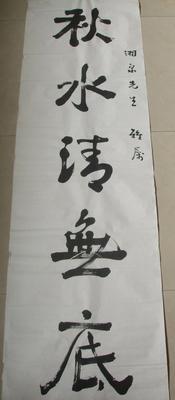 秋水清無底
湘泉先生 雅屬